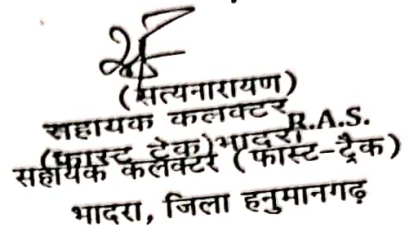 (सत्यनारायण)
सहायक कलक्टर
(फास्ट ट्रेक) भादरा R.A.S.
सहायक कलेक्टर (फास्ट-ट्रैक)
भादरा, जिला हनुमानगढ़